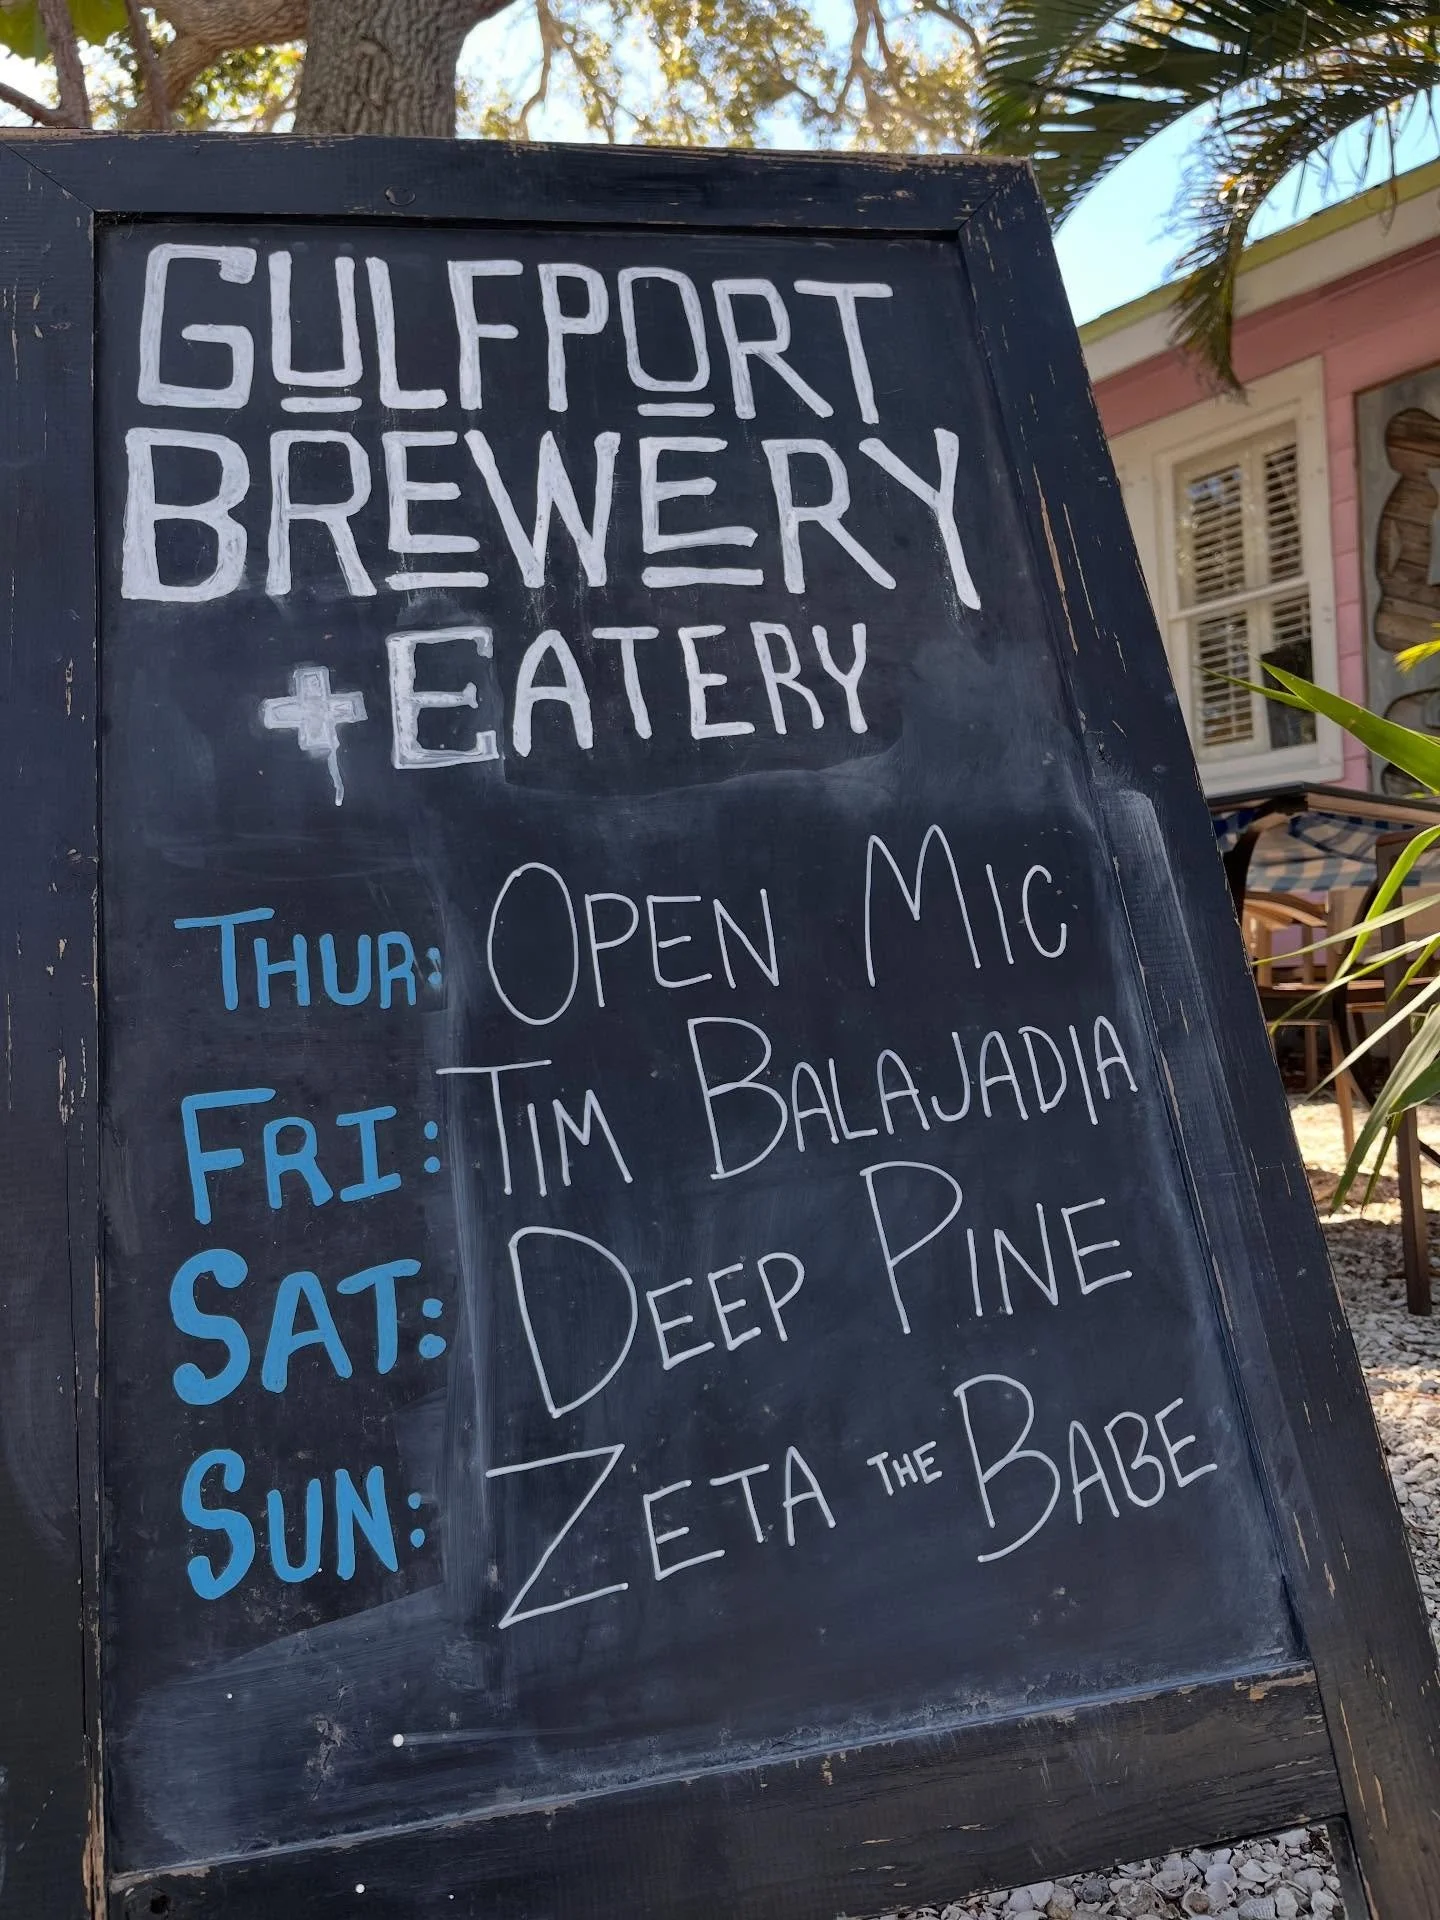 GULFPORT
BREWERY
+ EATERY
THUR: OPEN MIC
FRI: TIM BALAJADIA
SAT: DEEP PINE
SUN: ZETA THE BABE